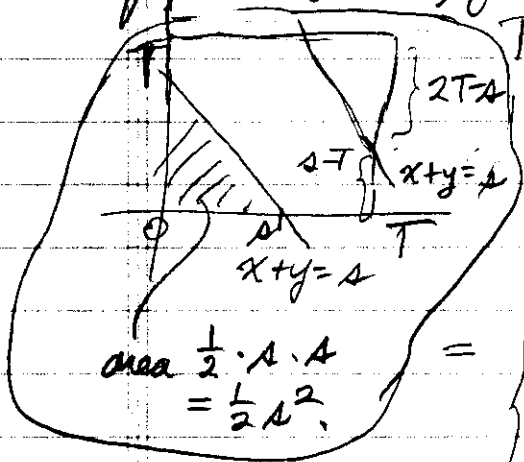 T
T
2T-s
s-T
x+y=s
O
s
T
x+y=s
area 1/2 · s · s
= 1/2 s².
=